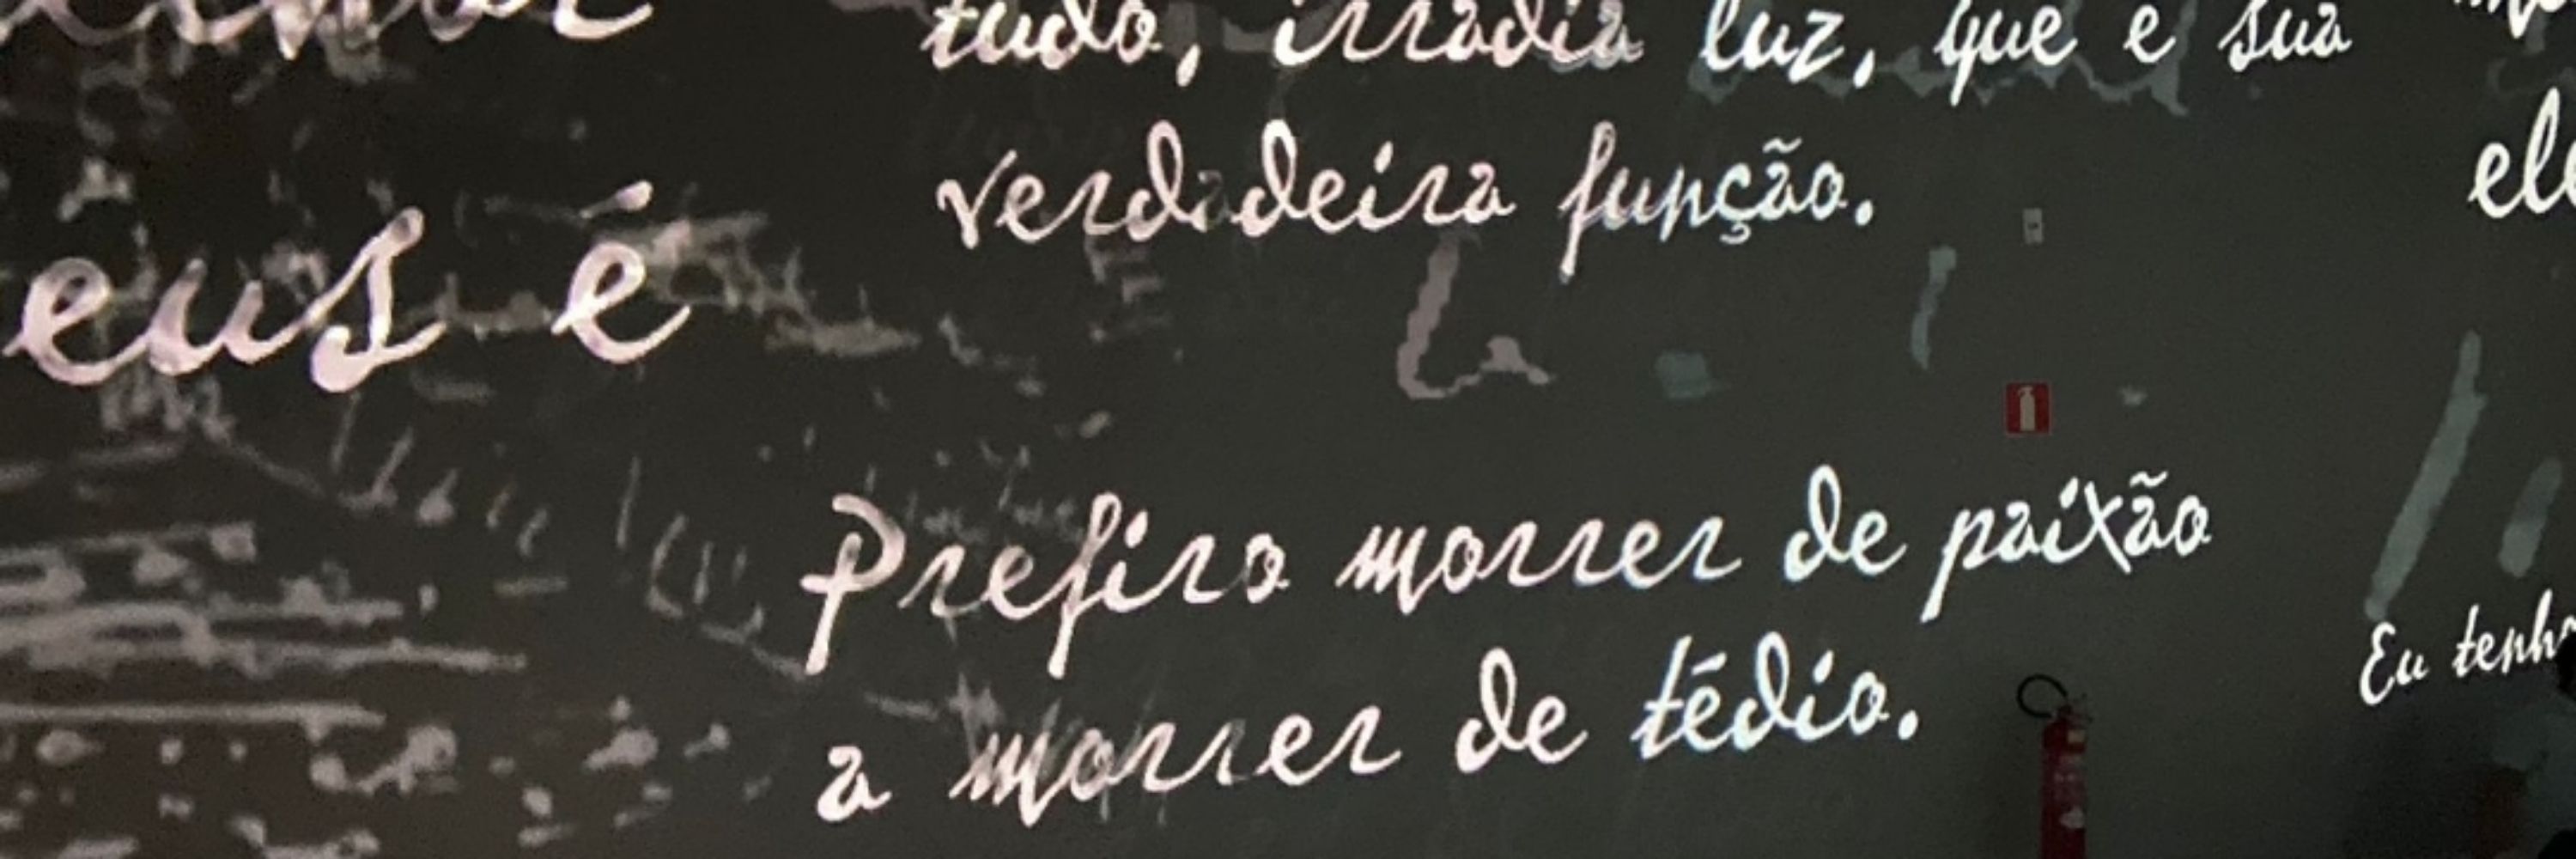 tudo, irradia luz, que é sua
verdadeira função.
eus é
Prefiro morrer de paixão
a morrer de tédio.
Eu tenh